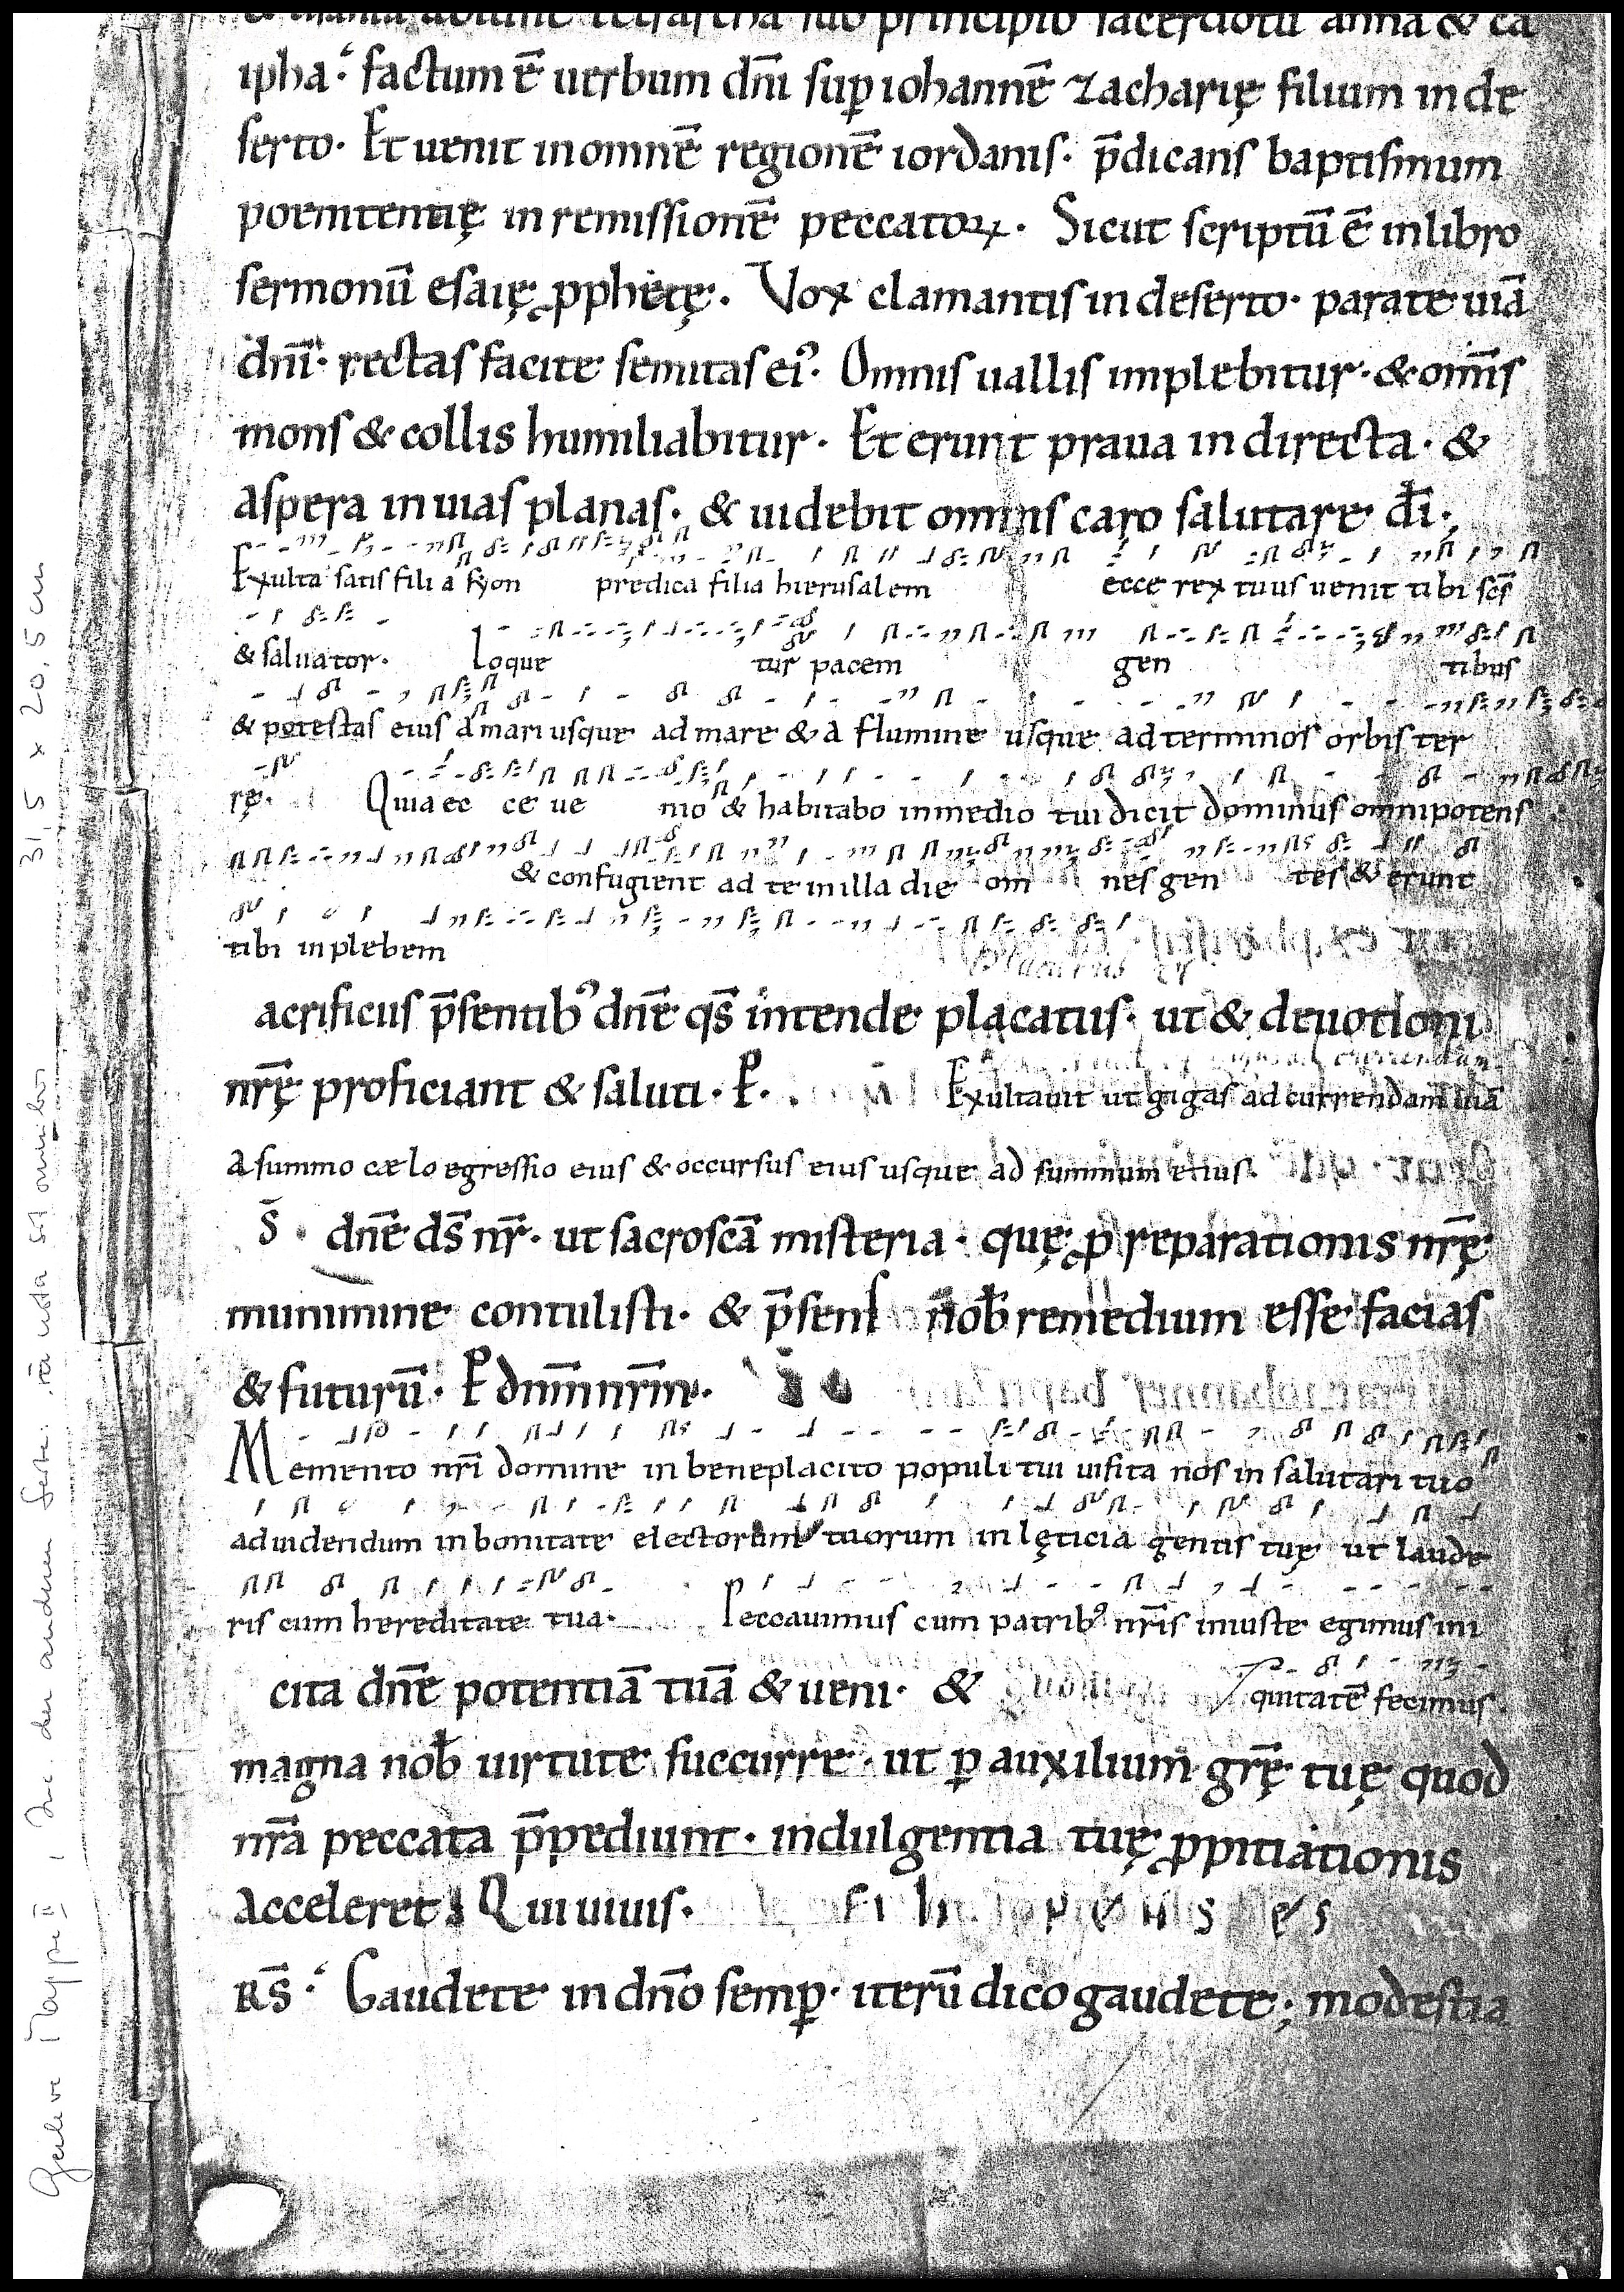 sub principio sacerdotū anna & ca
ipha· factum ē uerbum dn̄i sup̱ iohannē zacharię filium in de
serto· Et uenit in omnē regionē iordanis· p̄dicans baptismum
poenitentię in remissionē peccatoꝝ· Sicut scriptū ē in libro
sermonū esaię ꝓphetę· Vox clamantis in deserto· parate uiā
dn̄i· rectas facite semitas ei⁹· Omnis uallis implebitur· & om̄is
mons & collis humiliabitur· Et erunt praua in directa· &
aspera in uias planas· & uidebit omnis caro salutare dī·
Exulta satis filia syon predica filia hierusalem ecce rex tuus uenit tibi scs̄
& saluator· Loque tur pacem gen tibus
& potestas eius a mari usque ad mare & a flumine usque ad terminos orbis ter
rę· Quia ec ce ue nio & habitabo in medio tui dicit dominus omnipotens
& confugient ad te in illa die om nes gen tes & erunt
tibi in plebem
acrificiis p̄sentib⁹ dn̄e qs̄ intende placatus· ut & deuotioni
nr̄ę proficiant & saluti· P̱·
Exultauit ut gigas ad currendam uiā
A summo cælo egressio eius & occursus eius usque ad summum eius·
S̄· dn̄e ds̄ nr̄· ut sacroscā misteria· quę ꝓ reparationis nr̄ę
munimine contulisti· & p̄sens nob̄ remedium esse facias
& futurū· P̱ dnm̄ nr̄m·
Memento nr̄i domine in beneplacito populi tui uisita nos in salutari tuo
ad uidendum in bonitate electorum tuorum in lęticia gentis tuę ut laude
ris cum hereditate tua· Peccauimus cum patrib⁹ nr̄is iniuste egimus ini
quitatē fecimus·
cita dn̄e potentiā tuā & ueni· &
magna nob̄ uirtute succurre· ut ꝑ auxilium gr̄ę tuę quod
nr̄a peccata p̄pediunt· indulgentia tuę ꝓpitiationis
acceleret Qui uiuis·
Rs̄· Gaudete in dn̄o semꝑ· iterū dico gaudete; modestia
31,5 x 20,5 cm